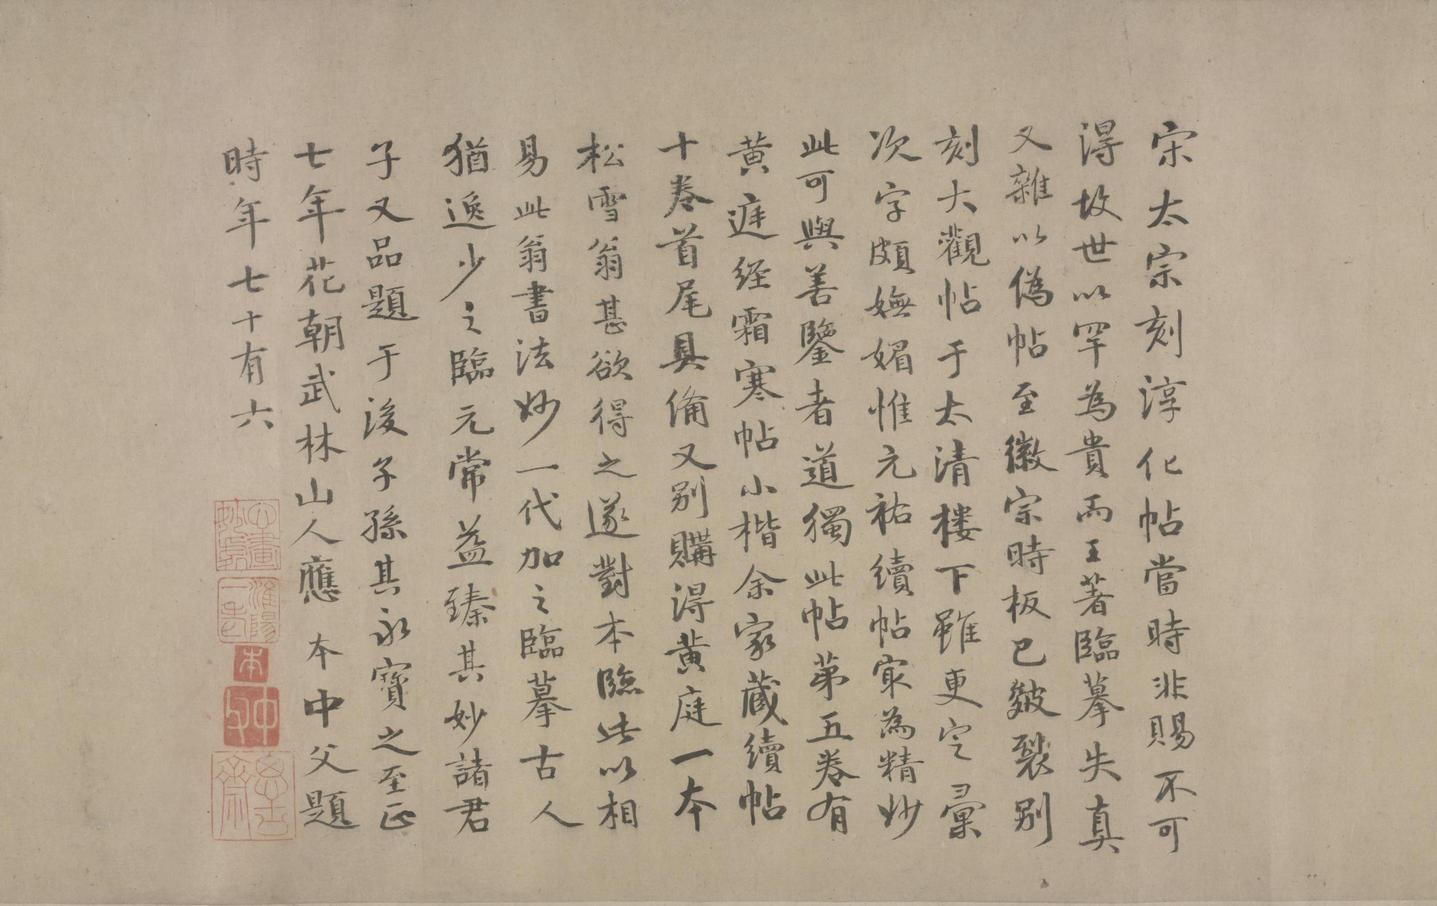 宋太宗刻淳化帖當時非賜不可
得故世以罕為貴而王著臨摹失真
又雜以偽帖至徽宗時板已皴裂別
刻大觀帖于太清樓下雖更定彙
次字頗嫵媚惟元祐續帖最為精妙
此可與善鑒者道獨此帖第五卷有
黃庭經霜寒帖小楷余家藏續帖
十卷首尾具備又别購得黃庭一本
松雪翁甚欲得之遂對本臨此以相
易此翁書法妙一代加之臨摹古人
猶逸少之臨元常益臻其妙諸君
子又品題于後子孫其永寶之至正
七年花朝武林山人應本中父題
時年七十有六